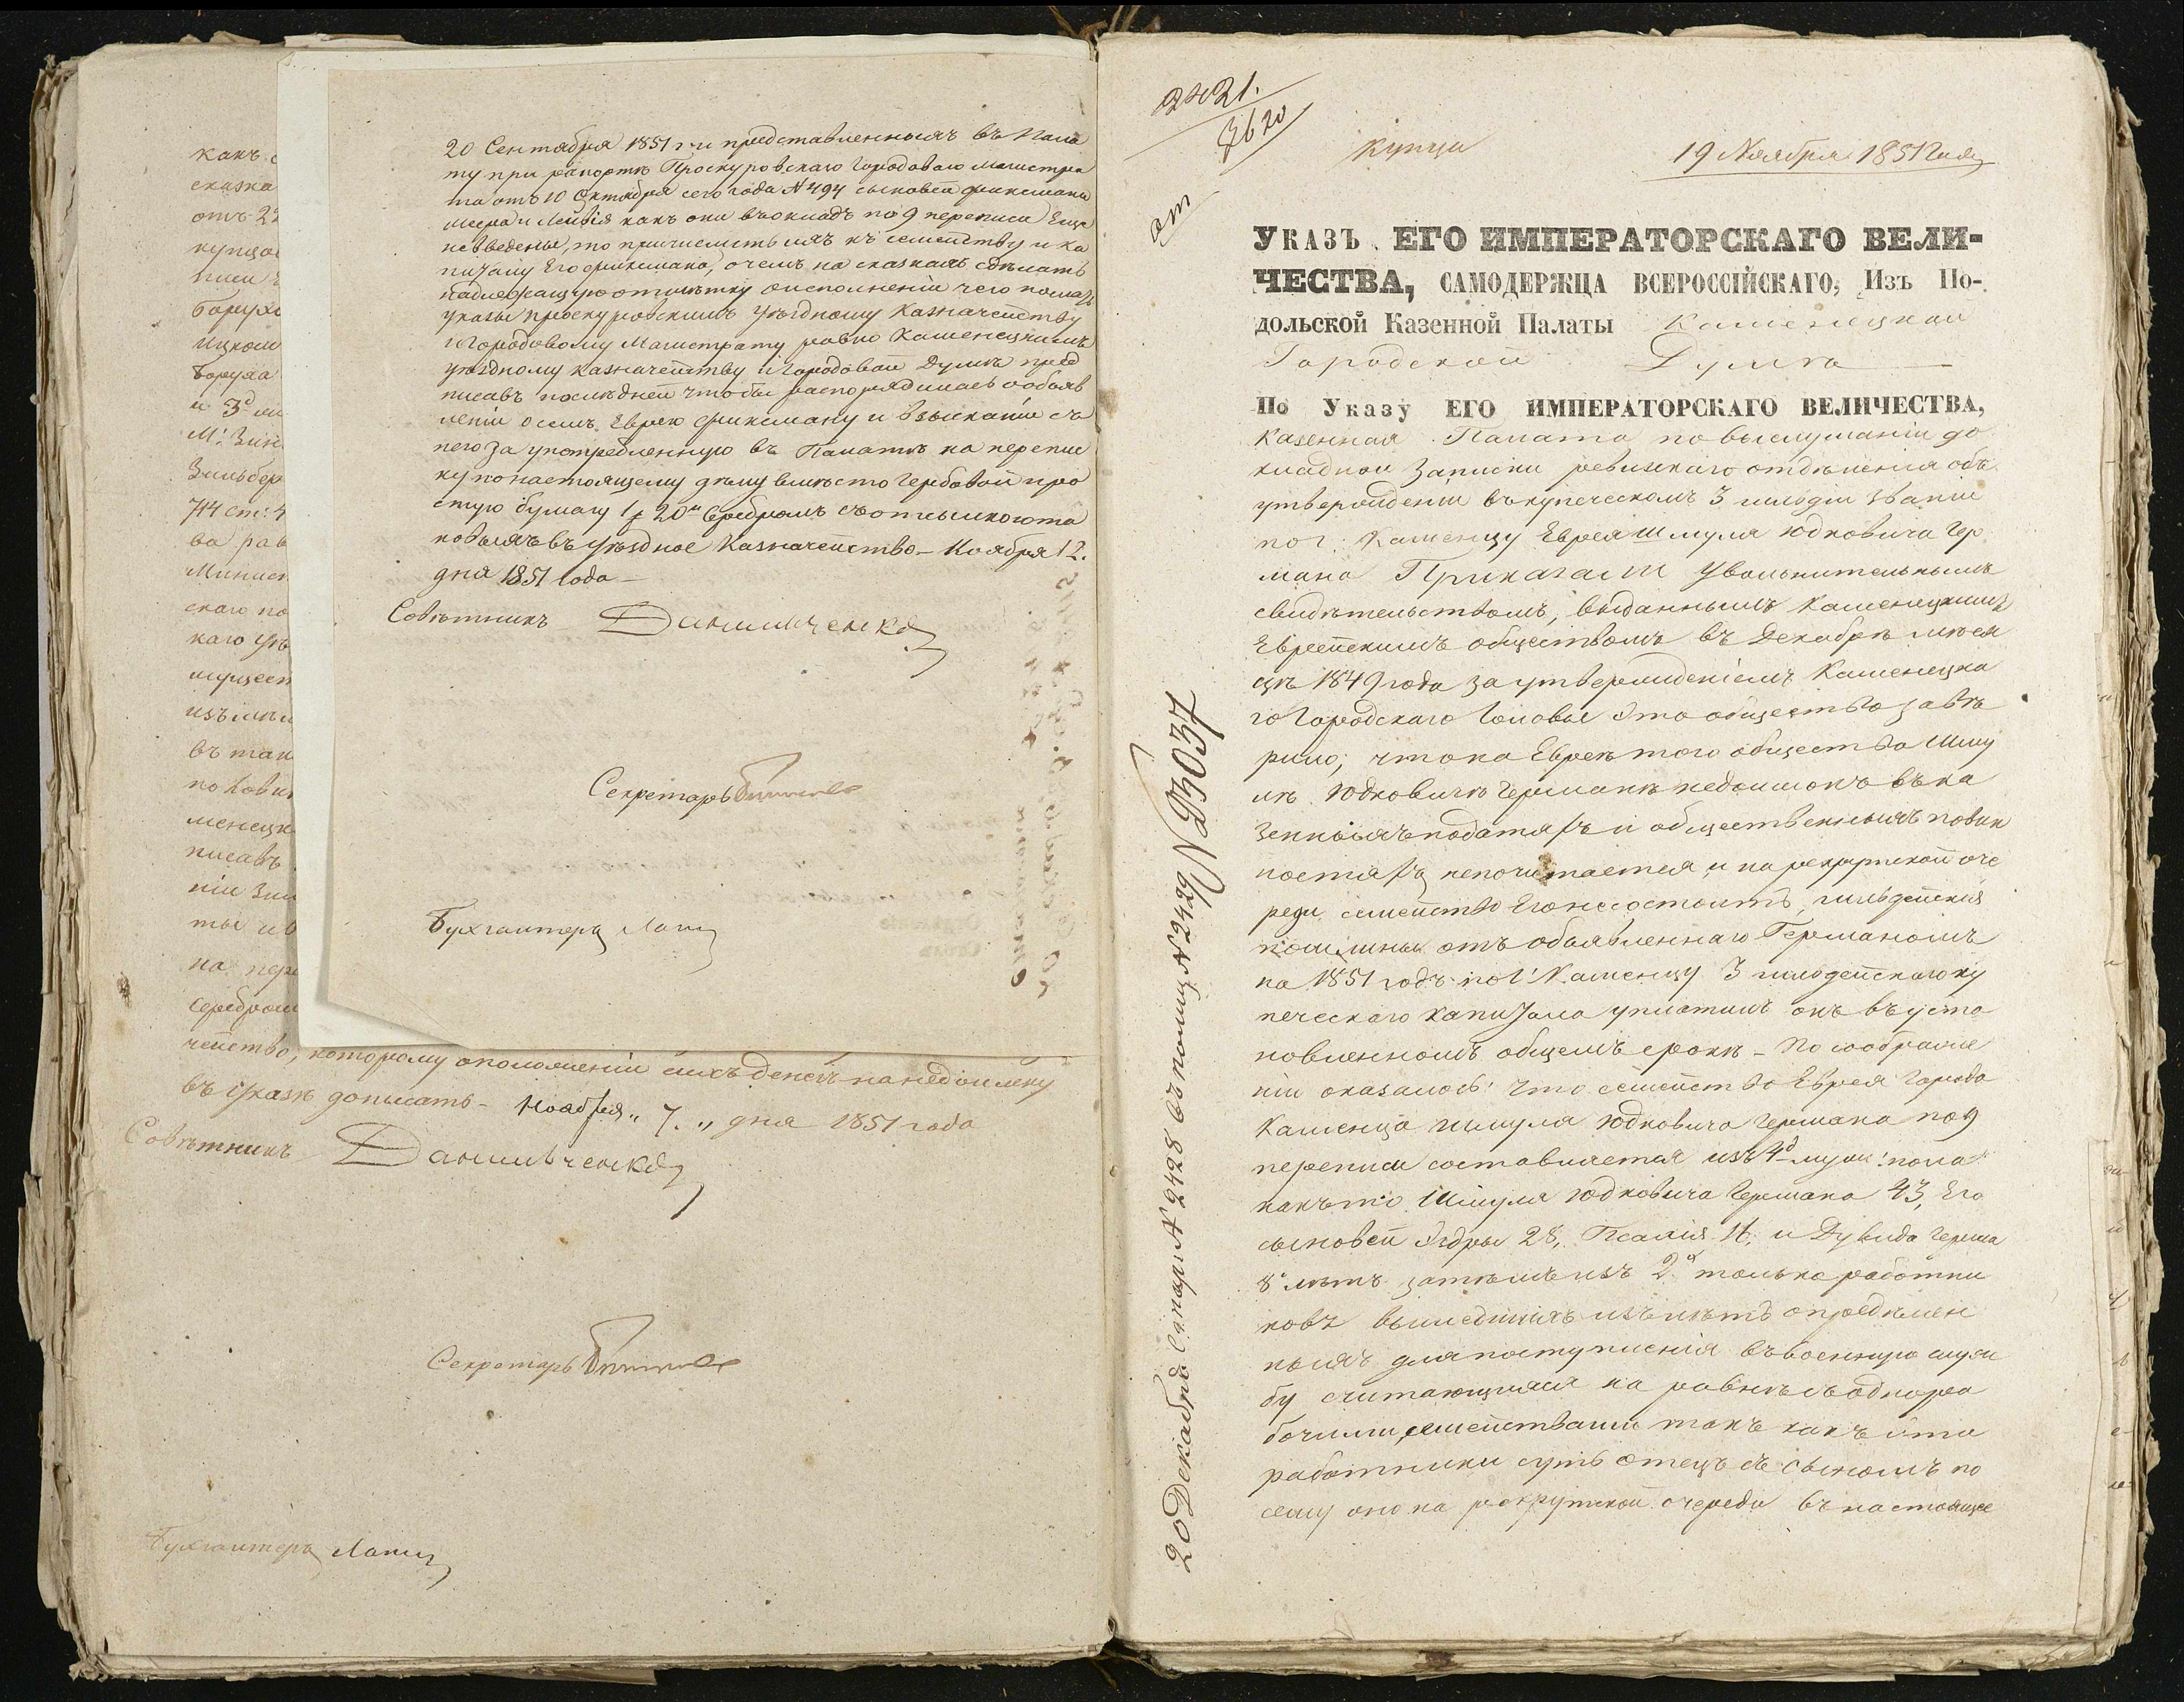 20 Сентября 1851 г. и представленныхъ въ Пала
ту при рапортѣ Проскуровскаго Городоваго Магистра
та отъ 10 Октября сего года № 494 сыновей Фиксмана
Меера и Лейбія какъ они въ окладъ по 9 переписи Еще
не введены, то причислить ихъ къ семейству и ка
питалу Его Фиксмана, о чемъ на сказкахъ сдѣлать
надлежащую отмѣтку о исполненіи чего послать
указы Проскуровскимъ Уѣздному Казначейству
и Городовому Магистрату равно Каменецкимъ
уѣздному казначейству и Городовой Думѣ пред
писавъ послѣдней чтобы распорядилась о объяв
леніи о семъ Еврею Фиксману и взысканіи съ
него за употребленную въ Палатѣ на перепис
ку по настоящему дѣлу вмѣсто Гербовой про
стую бумагу 1 р 20 к Серебромъ съ отсылкою та
ковыхъ въ Уѣздное Казначейство – Ноября 12.
дня 1851 года –
Совѣтникъ Данильченко
Секретарь
Бухгалтеръ
какъ
сказка
отъ 22
купцо
Борухо
ицком
Боруха
и 3
М. Зин
Зильбер
714 ст: 4
ва рав
Минис
скаго по
каго Уѣ
имущест
изъ имъ
въ так
по Нови
менецк
писавъ
ніи Зин
ты и в
на пере
серебром
чейство, которому о положеніи сихъ денегъ на недоимку
въ Указѣ дописать – Ноября „ 7. „ дня 1851 года
Совѣтникъ Данильченко
Секретарь
Бухгалтеръ
2421.
3620
ат
Купцы
19 Ноября 1851 Года
Указъ ЕГО ИМПЕРАТОРСКАГО ВЕЛИ-
ЧЕСТВА, САМОДЕРЖЦА ВСЕРОССІЙСКАГО, Изъ По-
дольской Казенной Палаты Каменецкой
Городской Думѣ
По Указу ЕГО ИМПЕРАТОРСКАГО ВЕЛИЧЕСТВА,
Казенная Палата по выслушаніи до
кладной Записки ревизскаго отдѣленія объ
утвержденіи въ купеческомъ 3 гильдіи званіи
по г. Каменцу Еврея Шмуля Юдковича Гер
мана Приказали Увольнительнымъ
свидѣтельствомъ, выданнымъ Каменецкимъ
Еврейскимъ обществомъ въ Декабрѣ мѣся
цѣ 1849 года за утвержденіемъ Каменецка
го Городскаго Головы Это общество завѣ
рило, что на Евреѣ того общества Шму
лѣ Юдковичѣ Германѣ недоимокъ въ ка
зенныхъ податяхъ и общественныхъ повин
ностяхъ непочитается, и на рекрутской оче
реди семейство Его несостоитъ, гильдейскія
пошлины отъ объявленнаго Германомъ
на 1851 годъ по г. Каменцу 3 гильдейскаго ку
печескаго капитала уплатилъ онъ въ уста
новленномъ общемъ срокѣ – По соображе
ніи оказалось: что семейство Еврея Города
Каменца Шмуля Юдковича Германа по 9
переписи составляется изъ 4 муж: пола
какъ то Шмуля Юдковича Германа 43, Его
сыновей Эздры 28, Псахія 11, и Дувида Герша
8 лѣтъ затѣмъ изъ 2 только работни
ковъ вышедшихъ изъ лѣтъ опредѣлен
ныхъ для поступленія въ военную служ
бу считающихся на равнѣ съ однора
бочими семействами такъ какъ эти
работники суть отецъ съ сыномъ по
сему оно на рекрутской очереди въ настоящее
20 Декабря Сатари № 2428 въ полиц № 2429 № 3037